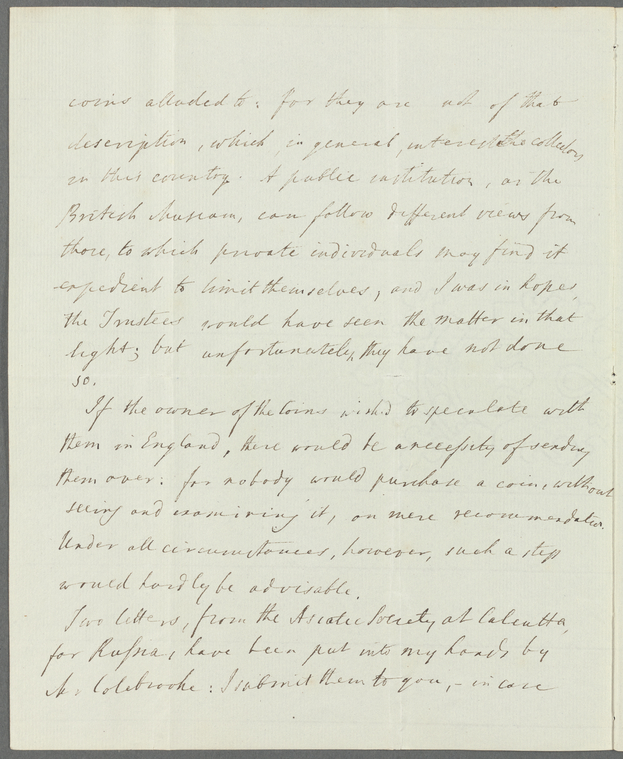 coins alluded to: for they are not of that
description, which, in general, interest the collectors
in this country. A public institution, as the
British Museum, can follow different views from
those, to which private individuals may find it
expedient to limit themselves, and I was in hopes,
the Trustees would have seen the matter in that
light; but unfortunately, they have not done
so.
If the owner of the Coins wish'd to speculate with
them in England, there would be a necessity of sending
them over: for nobody would purchase a coin, without
seeing and examining it, on mere recommendation.
Under all circumstances, however, such a step
would hardly be advisable.
Two letters, from the Asiatic Society at Calcutta,
for Russia, have been put into my hands by
Mr Colebrooke: I submit them to you, - in case